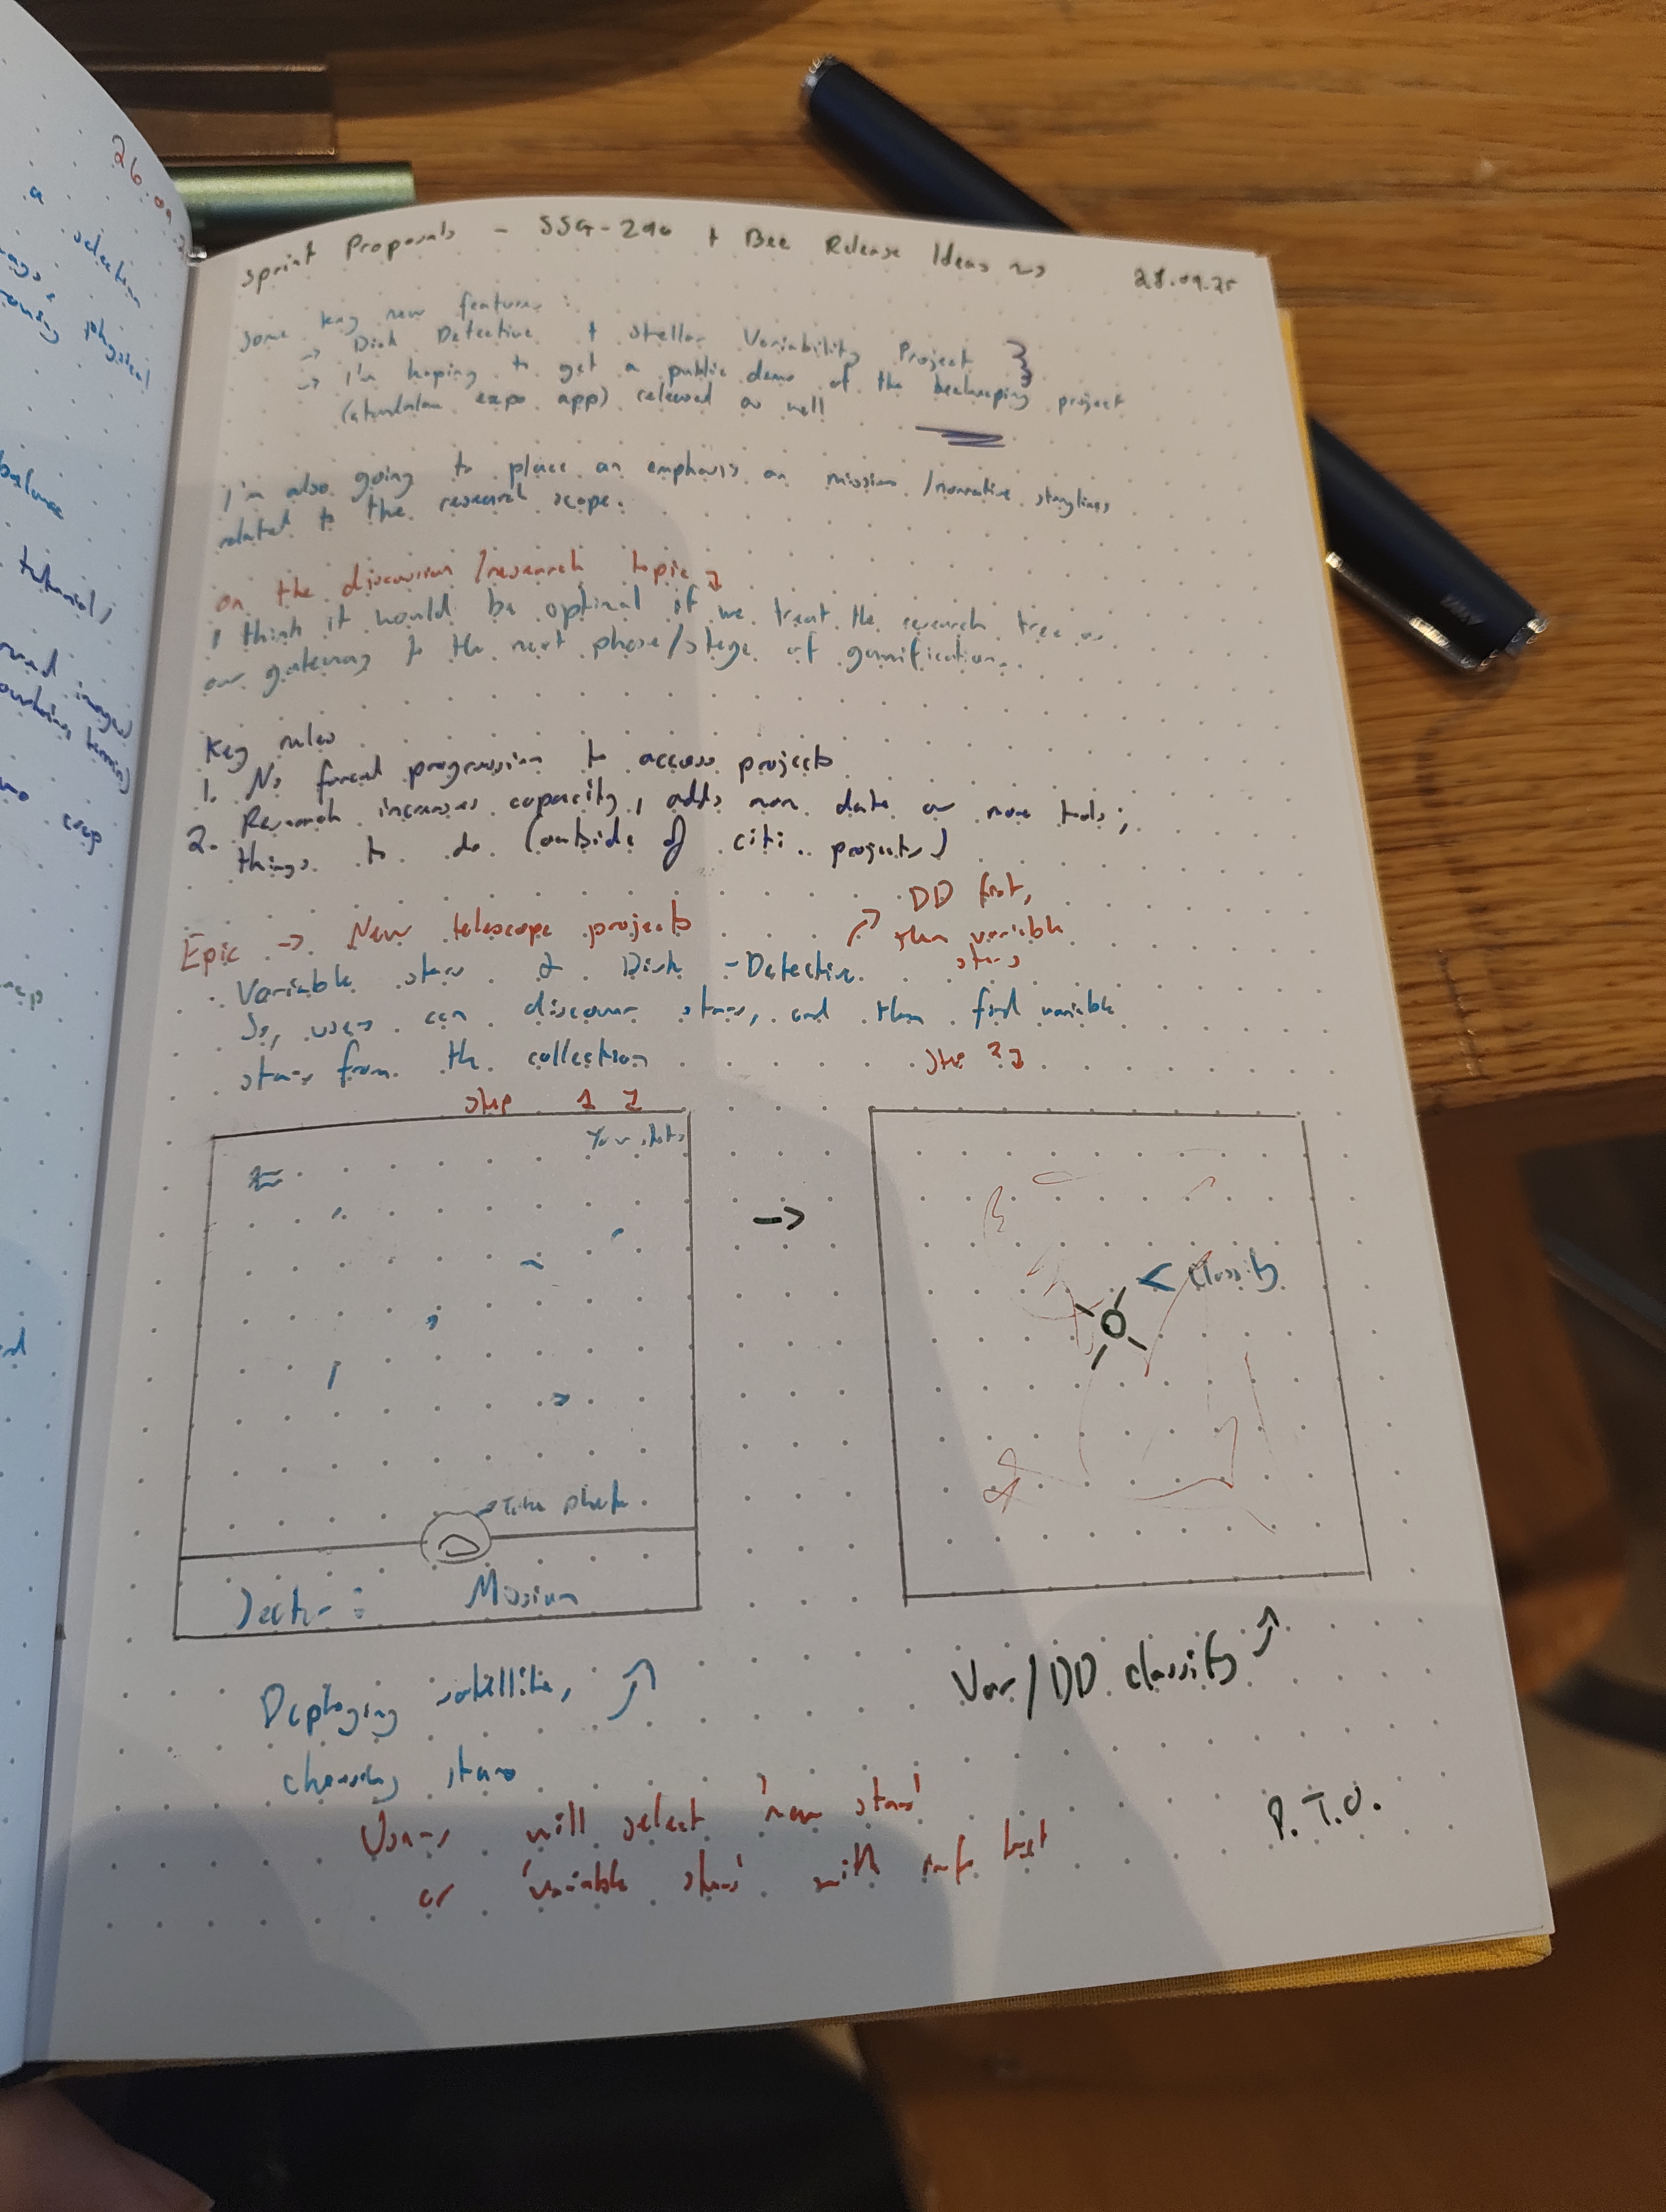 26.09.2
a selection
physical
balance
tutorial,
crop
Sprint Proposals - SSG-290 + Bee Release Ideas
28.09.25
Some key new features:
→ Disk Detective + Stellar Variability Project
→ I'm hoping to get a public demo of the beekeeping project
(standalon expo app) released as well
I'm also going to place an emphasis on mission /narrative storylines
related to the research scope.
On the discussion /research topic
I think it would be optimal if we treat the research tree as
our gateway to the next phase/stage of gamification..
Key rules
1. No forced progression to access projects
2. Research increases capacity, adds more data or more tools;
things to do (outside of citi. projects)
Epic → New telescope projects
↗ DD first,
then variable
stars
Variable stars & Disk-Detective.
So, users can discover stars, and then find variable
stars from the collection
step 1
Step 2
Your stats
→
< Classify
→ Take photo
Sector: Mission
Deploying satellite,
choosing stars
Var/DD classify
Users will select 'new stars'
or 'variable stars' with
P.T.O.